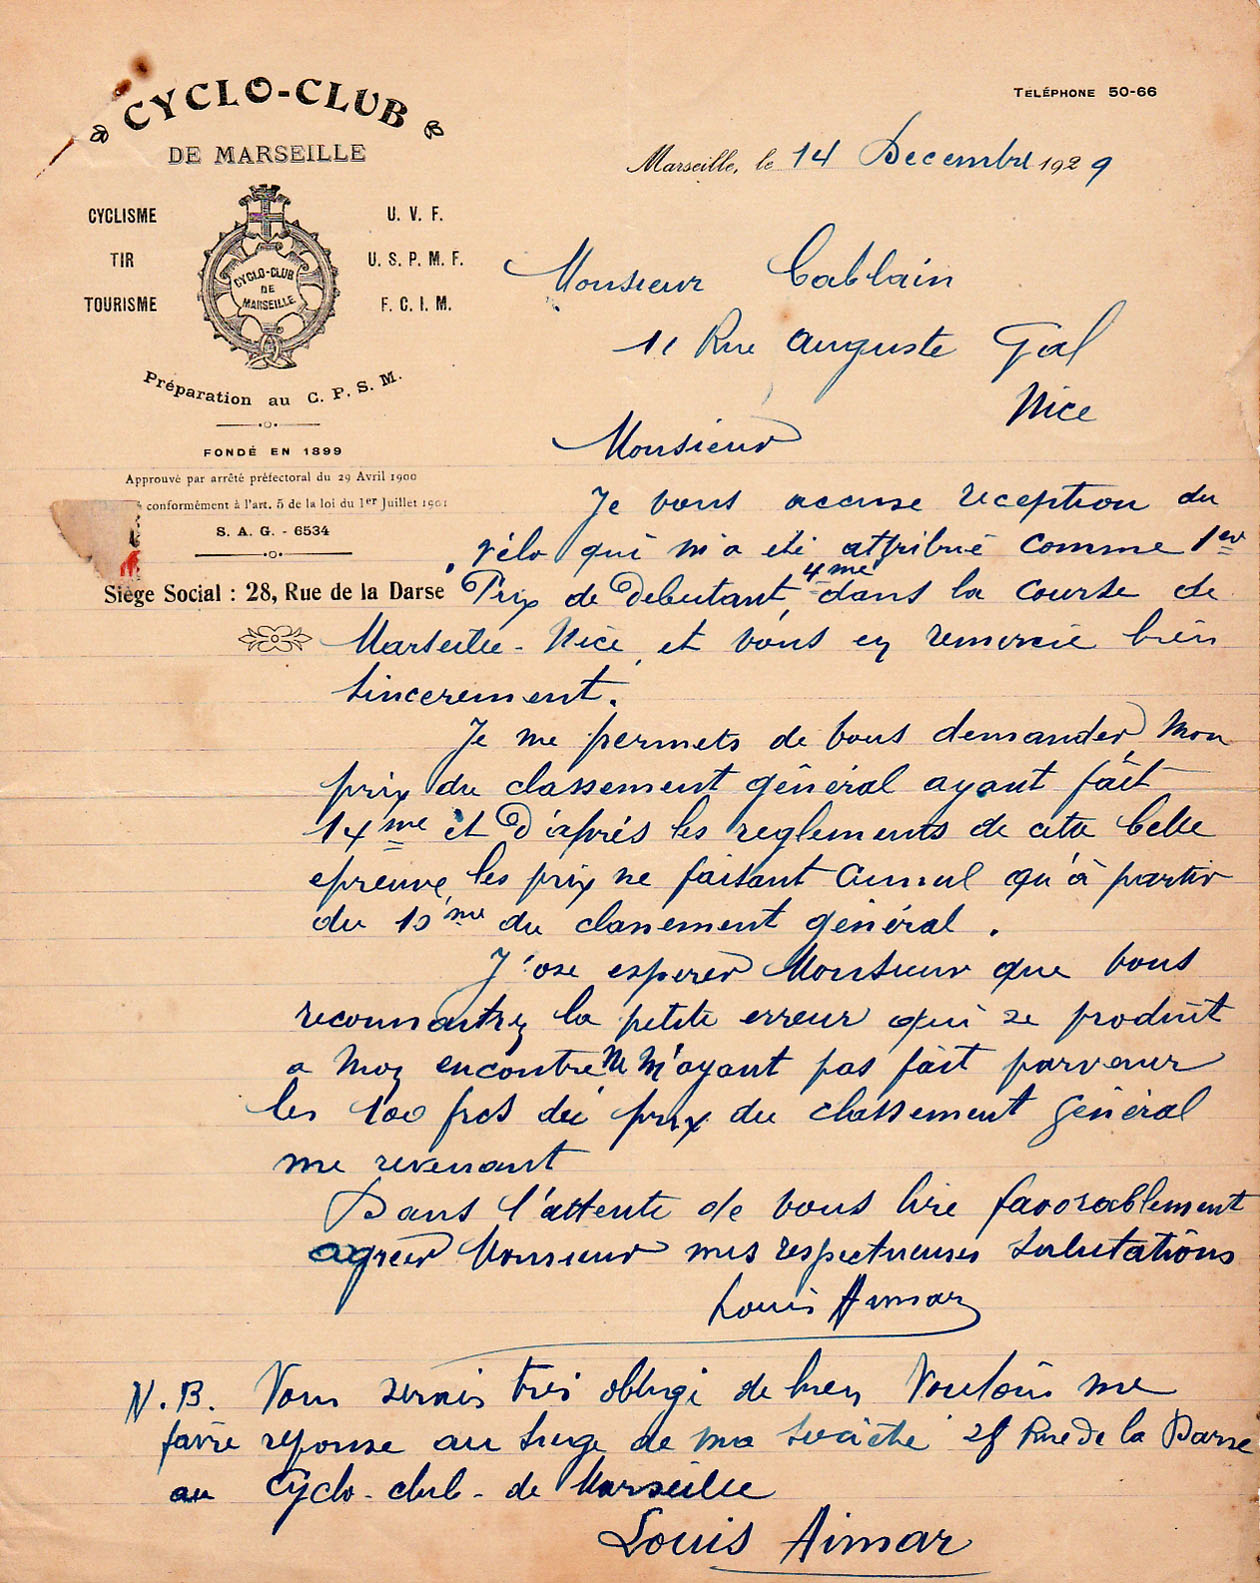 CYCLO-CLUB
DE MARSEILLE
CYCLISME
TIR
TOURISME
U. V. F.
U. S. P. M. F.
F. C. I. M.
CYCLO-CLUB
DE
MARSEILLE
Préparation au C. P. S. M.
FONDÉ EN 1899
Approuvé par arrêté préfectoral du 29 Avril 1900
conformément à l'art. 5 de la loi du 1er Juillet 1901
S. A. G. - 6534
Siège Social : 28, Rue de la Darse
TÉLÉPHONE 50-66
Marseille, le 14 Decembre 1929
Monsieur Cablain
11 Rue Auguste Gal
Nice
Monsieur
Je vous accuse reception du
vélo qui m'a eté attribué comme 1er
Prix de Debutant, 4me dans la course de
Marseille-Nice, et vous en remercie bien
sincerement.
Je me permets de vous demander, mon
prix du classement général ayant fait
14me et d'aprés les reglements de cette belle
epreuve, les prix ne faisant cumul qu'à partir
du 10me du classement général.
J'ose esperer Monsieur que vous
reconnaitrez la petite erreur qui se produit
a mon encontre ne m'ayant pas fait parvenir
les 100 frcs du prix du classement général
me revenant
Dans l'attente de vous lire favorablement
agreer Monsieur mes respectueuses salutations
Louis Aimar
N.B. Vous serais tres obligé de bien vouloir me
faire reponse au siege de ma societé 28 Rue de la Darse
au Cyclo-club-de Marseille
Louis Aimar